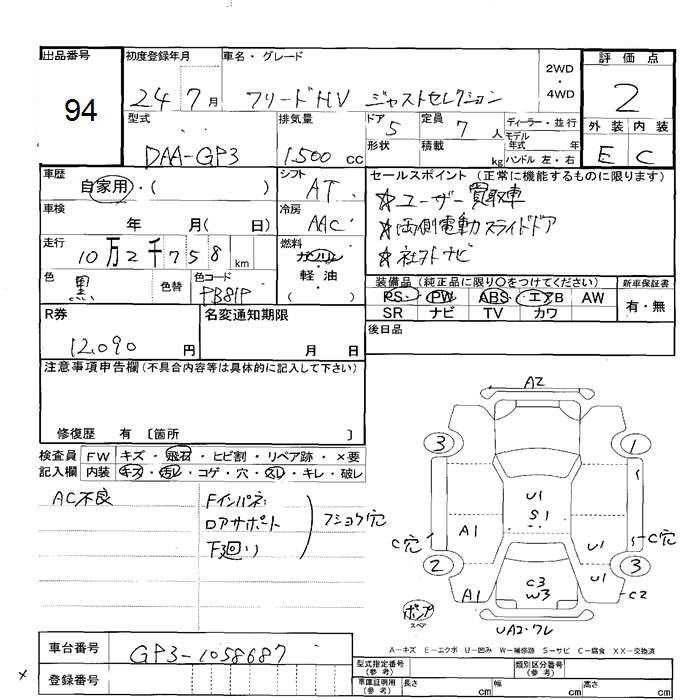 出品番号
94
初度登録年月
24年7月
車名・グレード
フリードHV ジャストセレクション
2WD
・
4WD
評価点
2
外装 内装
E C
型式
DAA-GP3
排気量
1500 cc
ドア 5
形状
定員 7 人
積載 kg
ディーラー・並行
モデル
年式 年
ハンドル 左・右
車歴
自家用・( )
車検
年 月( 日)
走行
10万2千758 km
色
黒
色替
色コード
PB81P
シフト
AT
冷房
AAC
燃料
ガソリン
・
軽油
( )
セールスポイント(正常に機能するものに限ります)
☆ユーザー買取車
☆両側電動スライドドア
☆社外ナビ
装備品(純正品に限り〇をつけてください)
PS・PW・ABS・エアB AW
SR ナビ TV カワ
新車保証書
有・無
後日品
R券
12,090 円
名変通知期限
月 日
注意事項申告欄(不具合内容等は具体的に記入して下さい)
修復歴 有 〔箇所 〕
検査員 FW キズ・飛石・ヒビ割・リペア跡・×要
記入欄 内装 キズ・汚レ・コゲ・穴・スレ・キレ・破レ
AC不良
Fインパネ
ロアサポート
下廻り
フショク穴
A2
3
1
U1
S1
A1
C穴
C穴
U1
2
3
U1
C3
W3
A1
C2
ポンプ
スペア
UA2・ワレ
A－キズ E－エクボ U－凹み W－補修跡 S－サビ C－腐食 XX－交換済
車台番号
GP3-1058687
登録番号
型式指定番号
(参考)
類別区分番号
(参考)
車庫証明用
(参考)
長さ cm
幅 cm
高さ cm
×